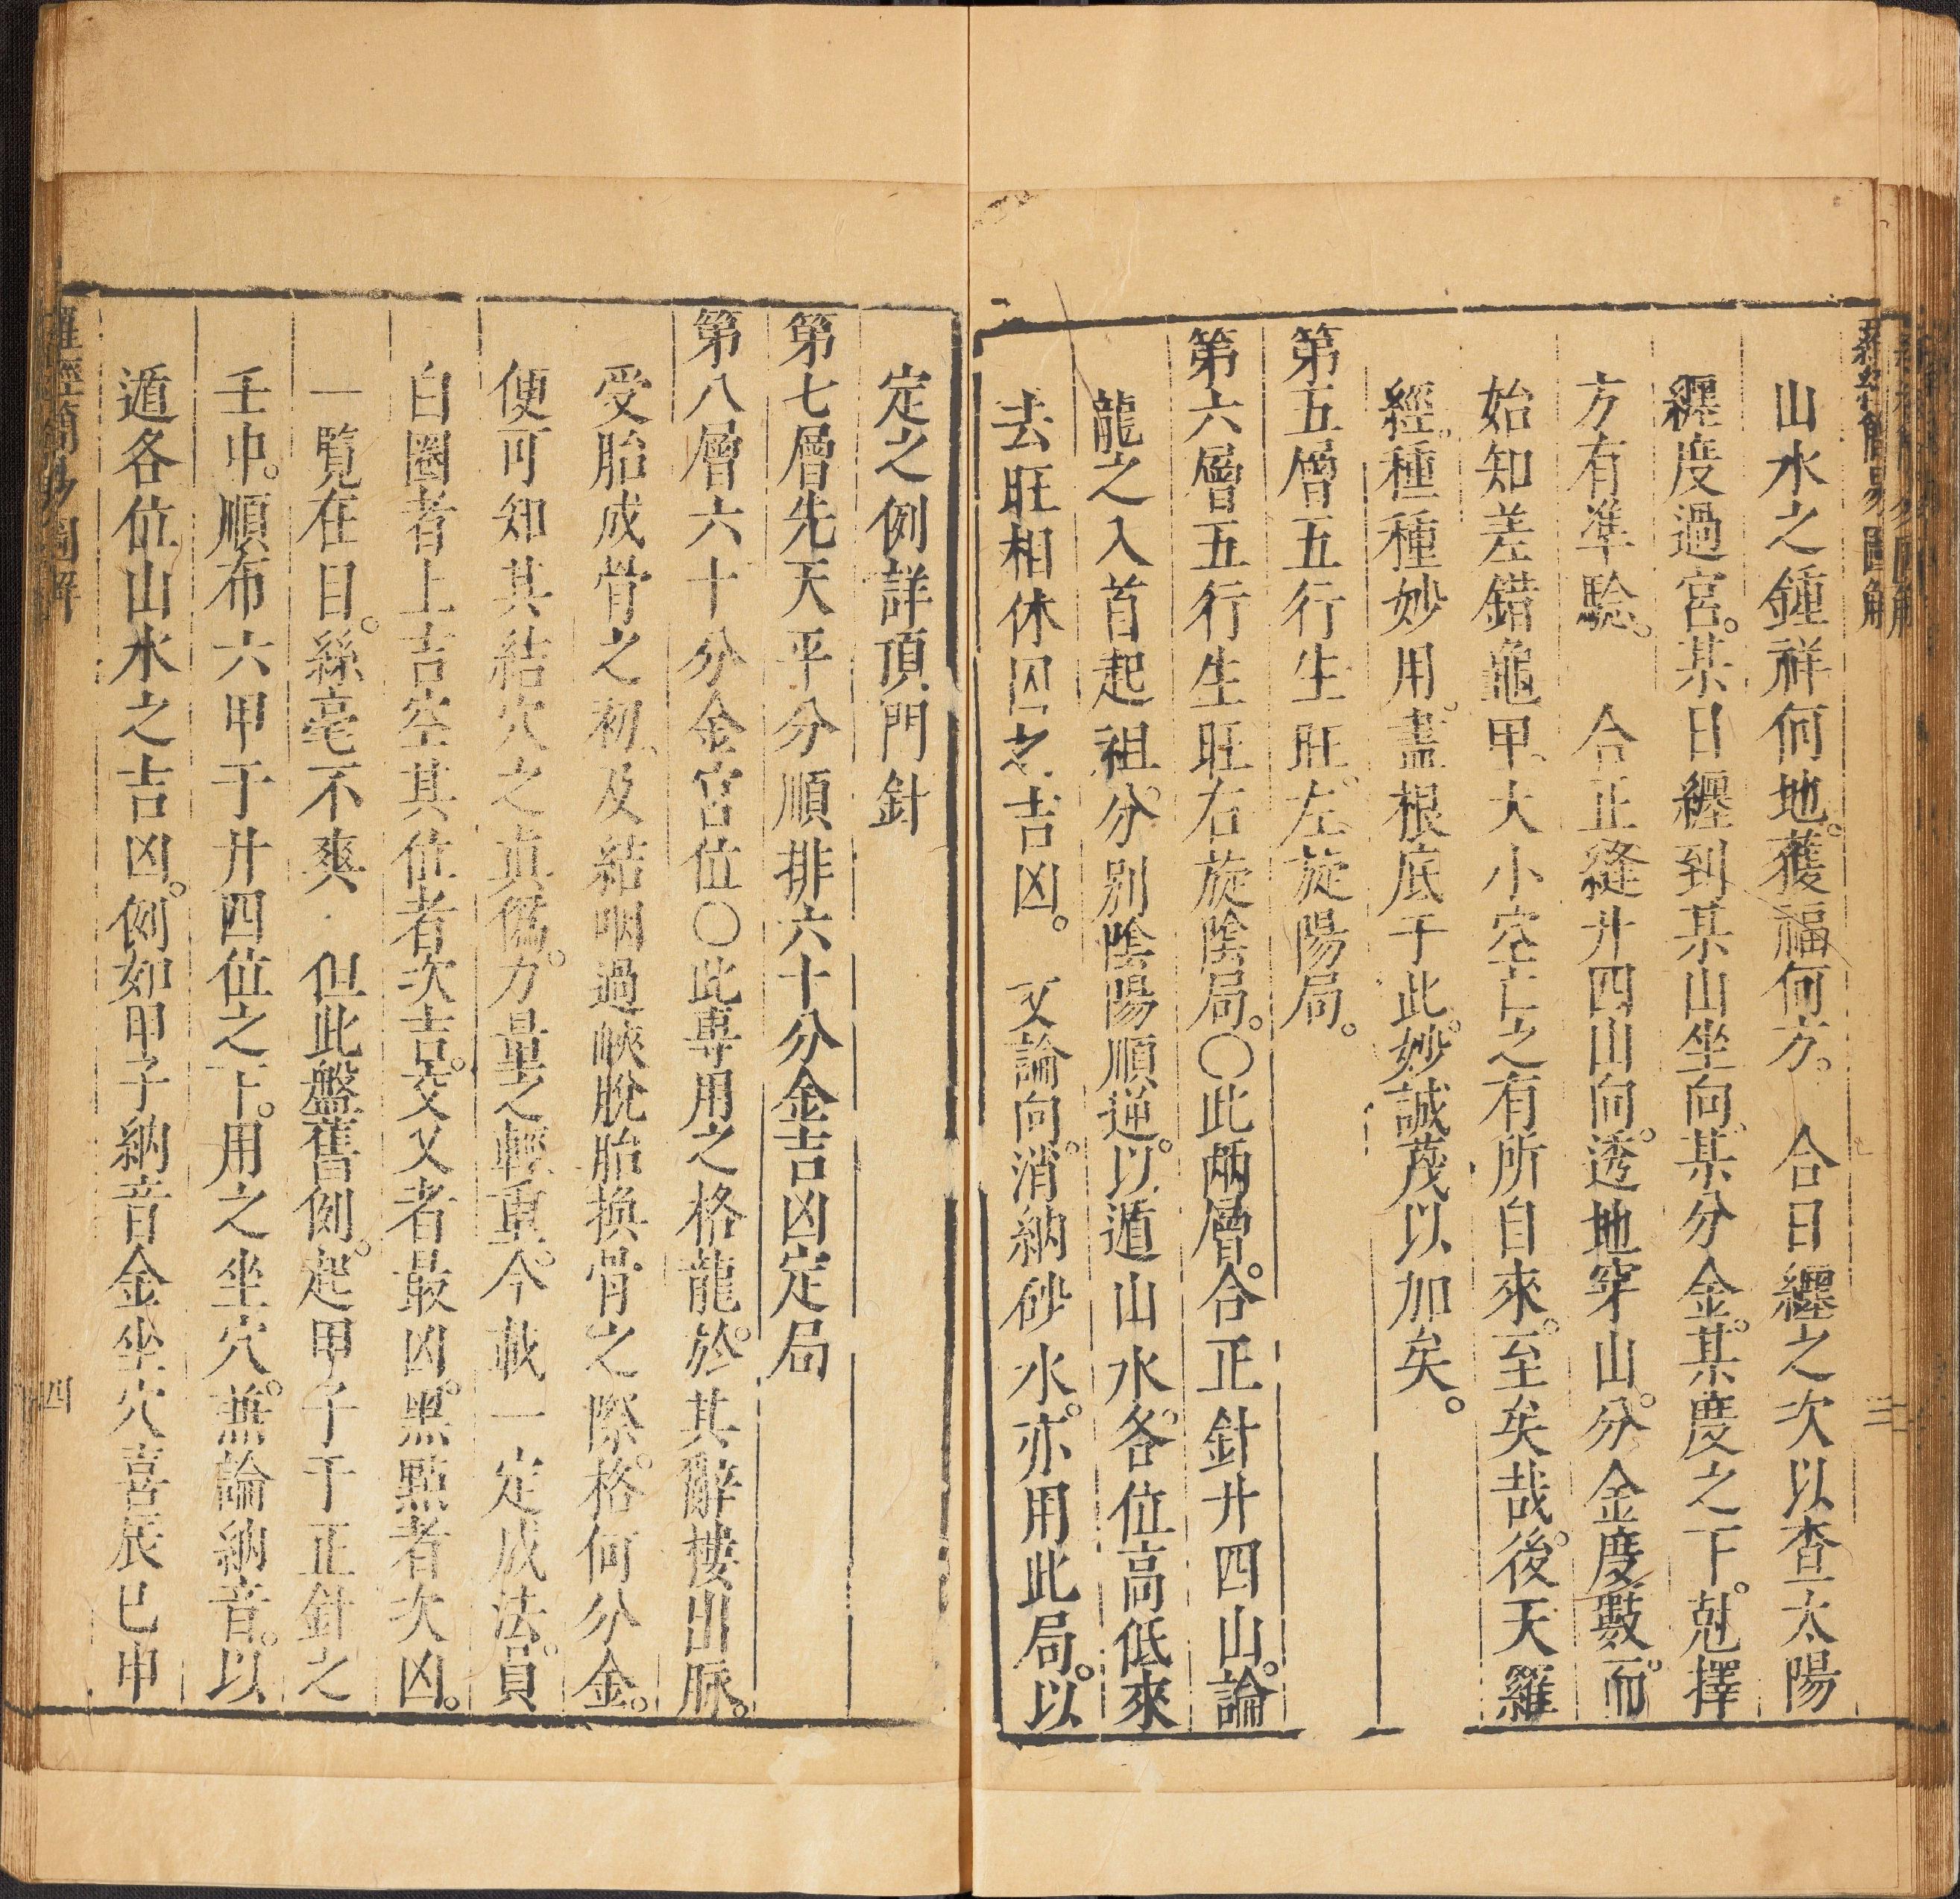 山水之鍾祥何地。獲福何方。　合日纏之次以查太陽
纏度過宮。某日纏到某山坐向、某分金。某度之下。尅擇
方有準驗。　合正縫廾四山向。透地穿山。分金度數。而
始知差錯龜甲、大小空亡之有所自來。至矣哉。後天羅
經。種種妙用。盡根底于此。妙誠蔑以加矣。
第五層五行生旺。左旋陽局。
第六層五行生旺右旋陰局。〇此兩層。合正針廾四山。論
龍之入首起祖。分別陰陽順逆。以遁山水。各位高低來
去旺相休囚之吉凶。　又論向。消納砂水。亦用此局。以
定之例詳頂門針
第七層先天平分順排六十分金吉凶定局
第八層六十分金宮位〇此專用之格龍。於其辭樓出脈。
受胎成骨之初、及結咽過峽脫胎換骨之際。格何分金。
便可知其結穴之真僞。力量之輕重。今載一定成法。員
白圈者上吉空其位者次吉。叉叉者最凶。黑點者次凶。
一覽在目。絲毫不爽　但此盤舊例。起甲子于正針之
壬中。順布六甲于廾四位之下。用之坐穴。兼論納音。以
遁各位山水之吉凶。例如甲子納音金坐穴喜辰巳申
四